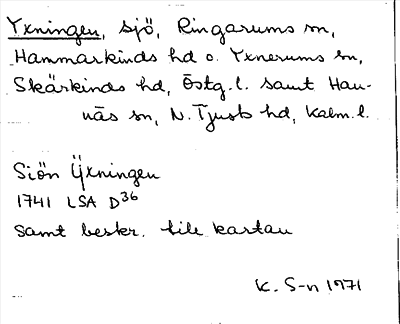 Yxningen, sjö, Ringarums sn,
Hammarkinds hd o. Yxnerums sn,
Skärkinds hd, Östg. l. samt Han-
näs sn, N. Tjusts hd, Kalm. l.
Siön Ÿxningen
1741 LSA D36
samt beskr. till kartan
K. S-n 1971